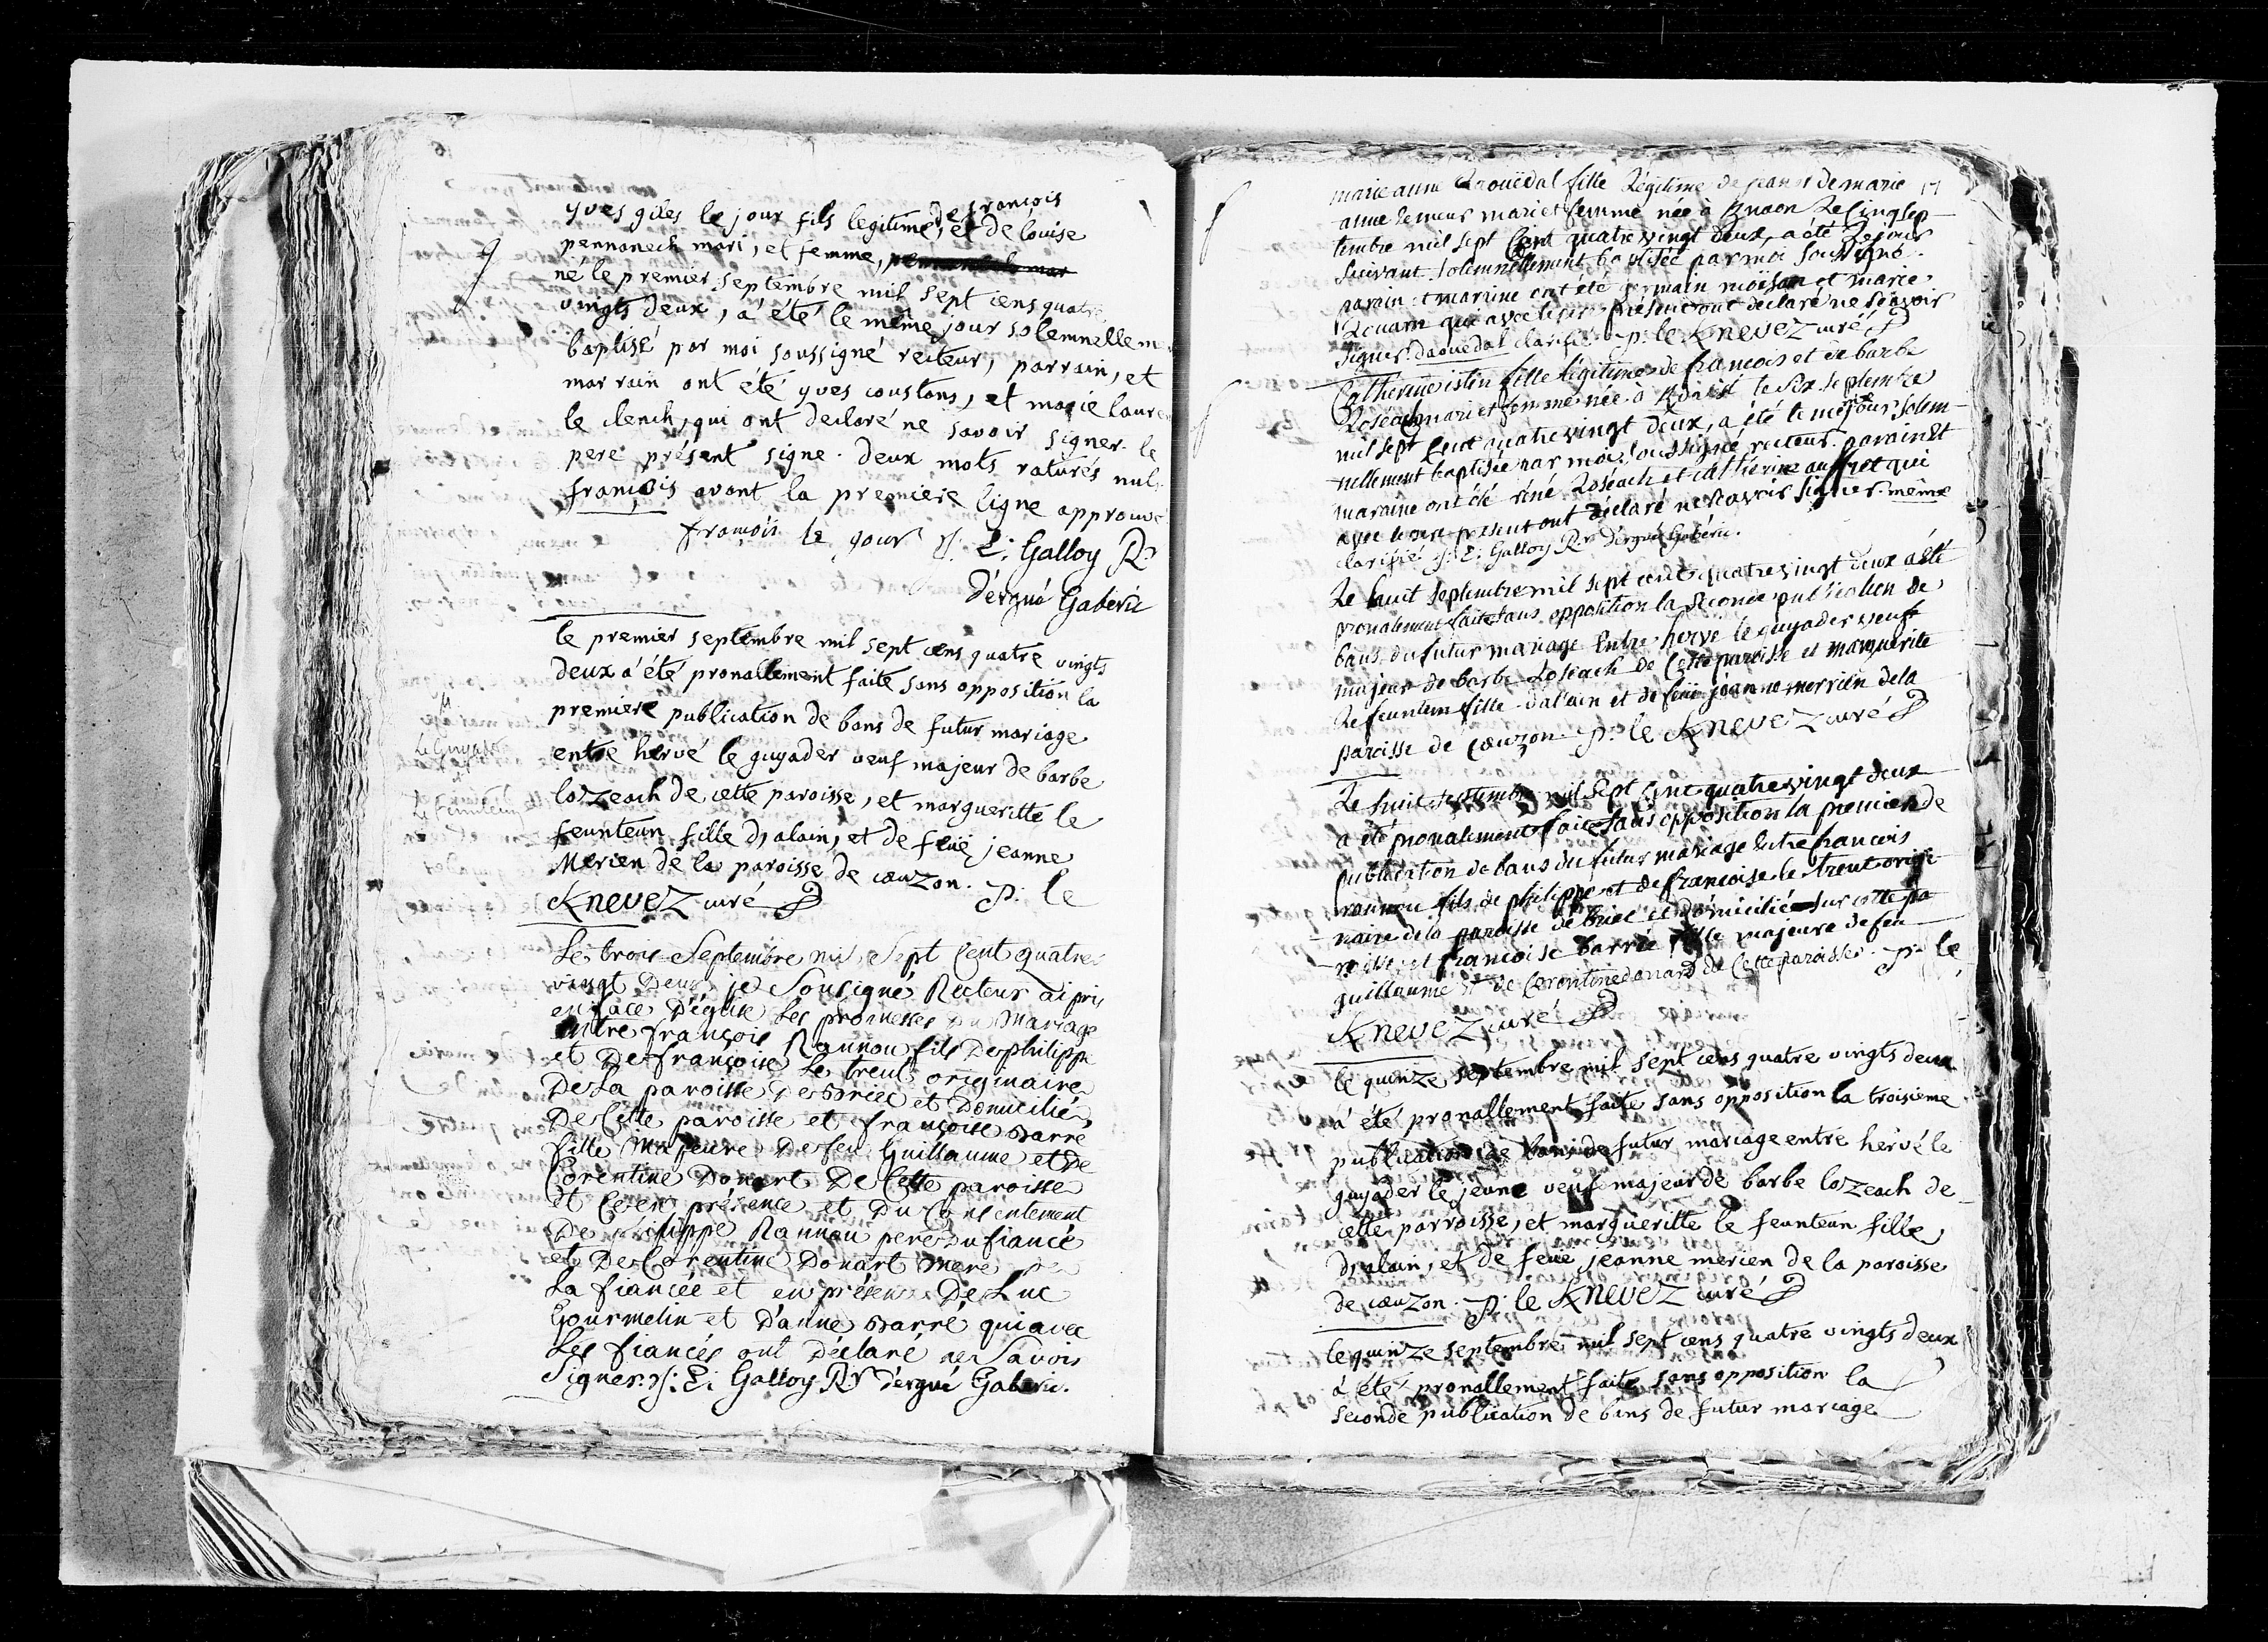 de françois
yves giles le jour fils legitime, et de louise
pennanech mari, et femme,
né le premier septembre mil sept cens quatre
vingts deux, a été le même jour solemnellem
baptisé par moi soussigné recteur, parrain, et
marrain ont été yves coustans, et marie laure
le clench, qui ont declaré ne savoir signer. le
pere présent signe. deux mots raturés nuls
françois avant la premiere ligne approuvé
françois le jour J: E: Galloy Rr
d'ergué Gaberic
le premier septembre mil sept cens quatre vingts
deux a été pronallement faite sans opposition la
premiere publication de bans de futur mariage
M
Le Guyader
et
Le feunteun
entre hervé le guyader veuf majeur de barbe
lozeach de cette paroisse, et margueritte le
feunteun fille d'alain, et de feüe jeanne
Merien de la paroisse de cauzon. p. le
Knevez curé
Le trois Septembre mil Sept Cent quatre
vingt Deux je Sousigné Recteur ai pris
en face D'église Les promesses du Mariage
Entre françois Rannou fils De philippe
et De françoise Le treut originaire
De La paroisse De briec et Domicilié
De Cette paroisse et françoise barré
fille Majeure De feu Guillaume et De
Corentine Donart De Cette paroisse
et Ce en présence et Du Consentement
De philippe Rannou pere Du fiancé
et De Corentine Donart Mere De
La fiancée et en présence De Luc
Gourmelin et D'anne barré qui avec
Les fiancés ont Déclaré ne Savoir
Signer. J: E: Galloy Rr d'ergué Gaberic.
17
marie anne fille Légitime de jean et de marie
anne lemeur mari et femme née à Le Cinq Sep
tembre mil sept Cent quatre vingt deux, a été Le jour
Suivant Solemnellement baptisée par moi Soussigné.
parain et marine ont été germain moisan et marie
qui avec le pere présent ont declaré ne Scavoir
Signer. clarifié p: le Knevez curé
Catherine istin fille légitime de francois et de barbe
Loseach mari et femme née à le Six Septembre
mil sept Cent quatre vingt deux, a été le meme jour Solem
nellement baptisée par moi Soussigné recteur. parain et
maraine ont été réné Loséach et catherine auffret qui
avec le pere présent ont déclaré ne scavoir signer. même
clarifié. J: E: Galloy Rr d'ergué Gaberic.
Le huit Septembre mil sept cent quatre vingt deux a été
pronalement faite sans opposition la seconde publication de
bans du futur mariage Entre hervé le guyader veuf
majeur de barbe Loseach de Cette paroisse et marguerite
Le feunteun fille d'alain et de feüe jeanne merrien de la
paroisse de cauzon. p. le Knevez curé
Le huit septembre mil sept Cent quatre vingt deux
a été pronalement faite sans opposition la premier de
publication de bans du futur mariage Entre francois
rannou fils de philippe et de francoise le treut origi
naire de la paroisse de briec et domicilié sur cette pa
roisse, et francoise barré fille majeure de feu
guillaume et de Corentine donard de Cette paroisse. p. le
Knevez curé
le quinze septembre mil sept cens quatre vingts deux
a été pronallement faite sans opposition la troisieme
publication de bans de futur mariage entre hervé le
guyader le jeune veuf majeur de barbe lozeach de
cette parroisse, et margueritte le feunteun fille
d'alain, et de feüe jeanne merien de la paroisse
de cauzon. p. le Knevez curé
le quinze septembre mil sept cens quatre vingts deux
a été pronallement faite sans opposition la
seconde publication de bans de futur mariage